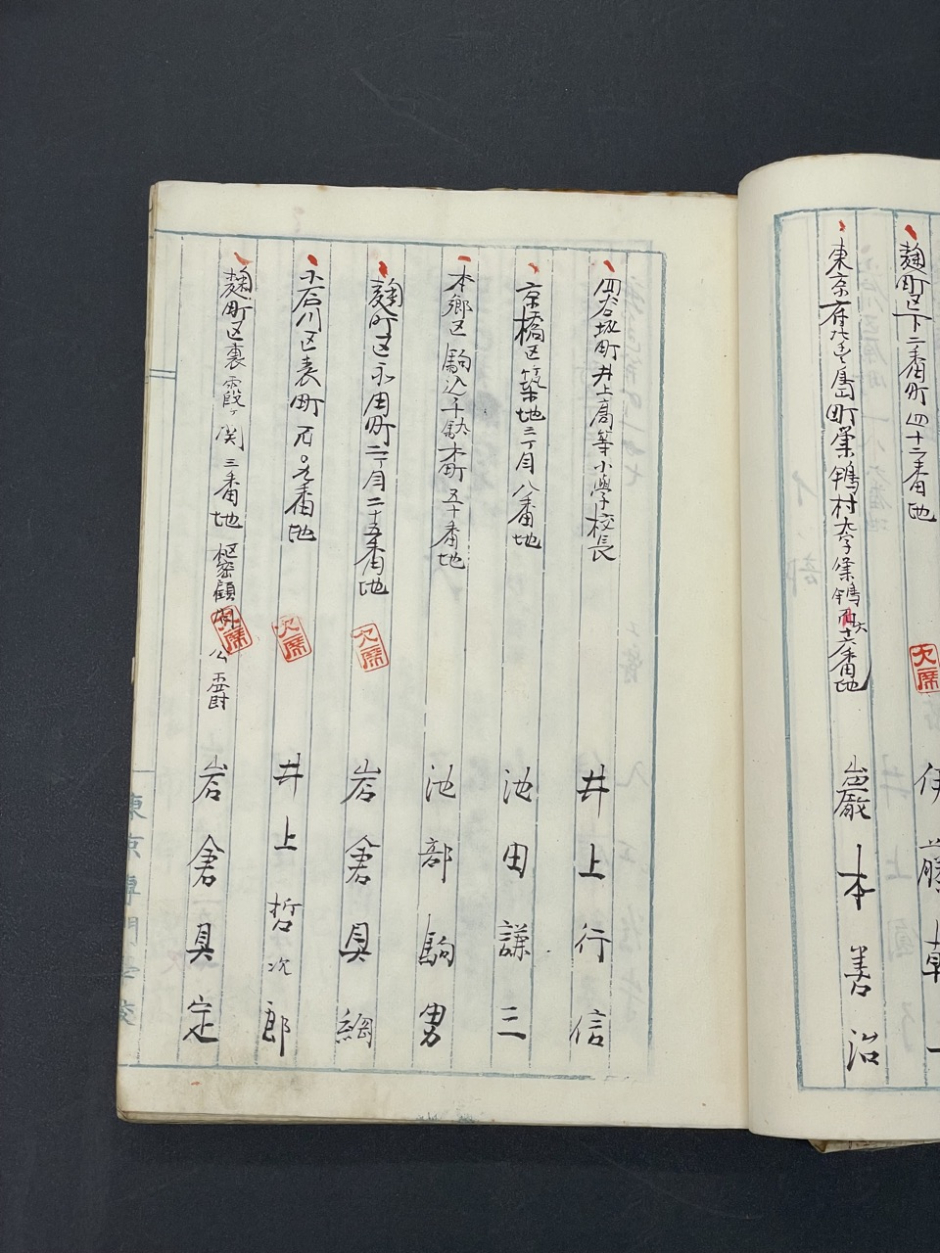 麹町区下二番町四十二番地
伊藤
東京府北豊島町巣鴨村大字巣鴨 十六番地
巖本善治
欠席
四谷坂町井上高等小學校長
井上行信
京橋区築地二丁目八番地
池田謙三
本郷区駒込千駄木町五十番地
池部駒男
麹町区永田町二丁目二十五番地
欠席
岩倉具綱
小石川区表町百〇九番地
欠席
井上哲次郎
麹町区裏霞ヶ関三番地
枢密顧
欠席
公爵
岩倉具定
東京専門学校